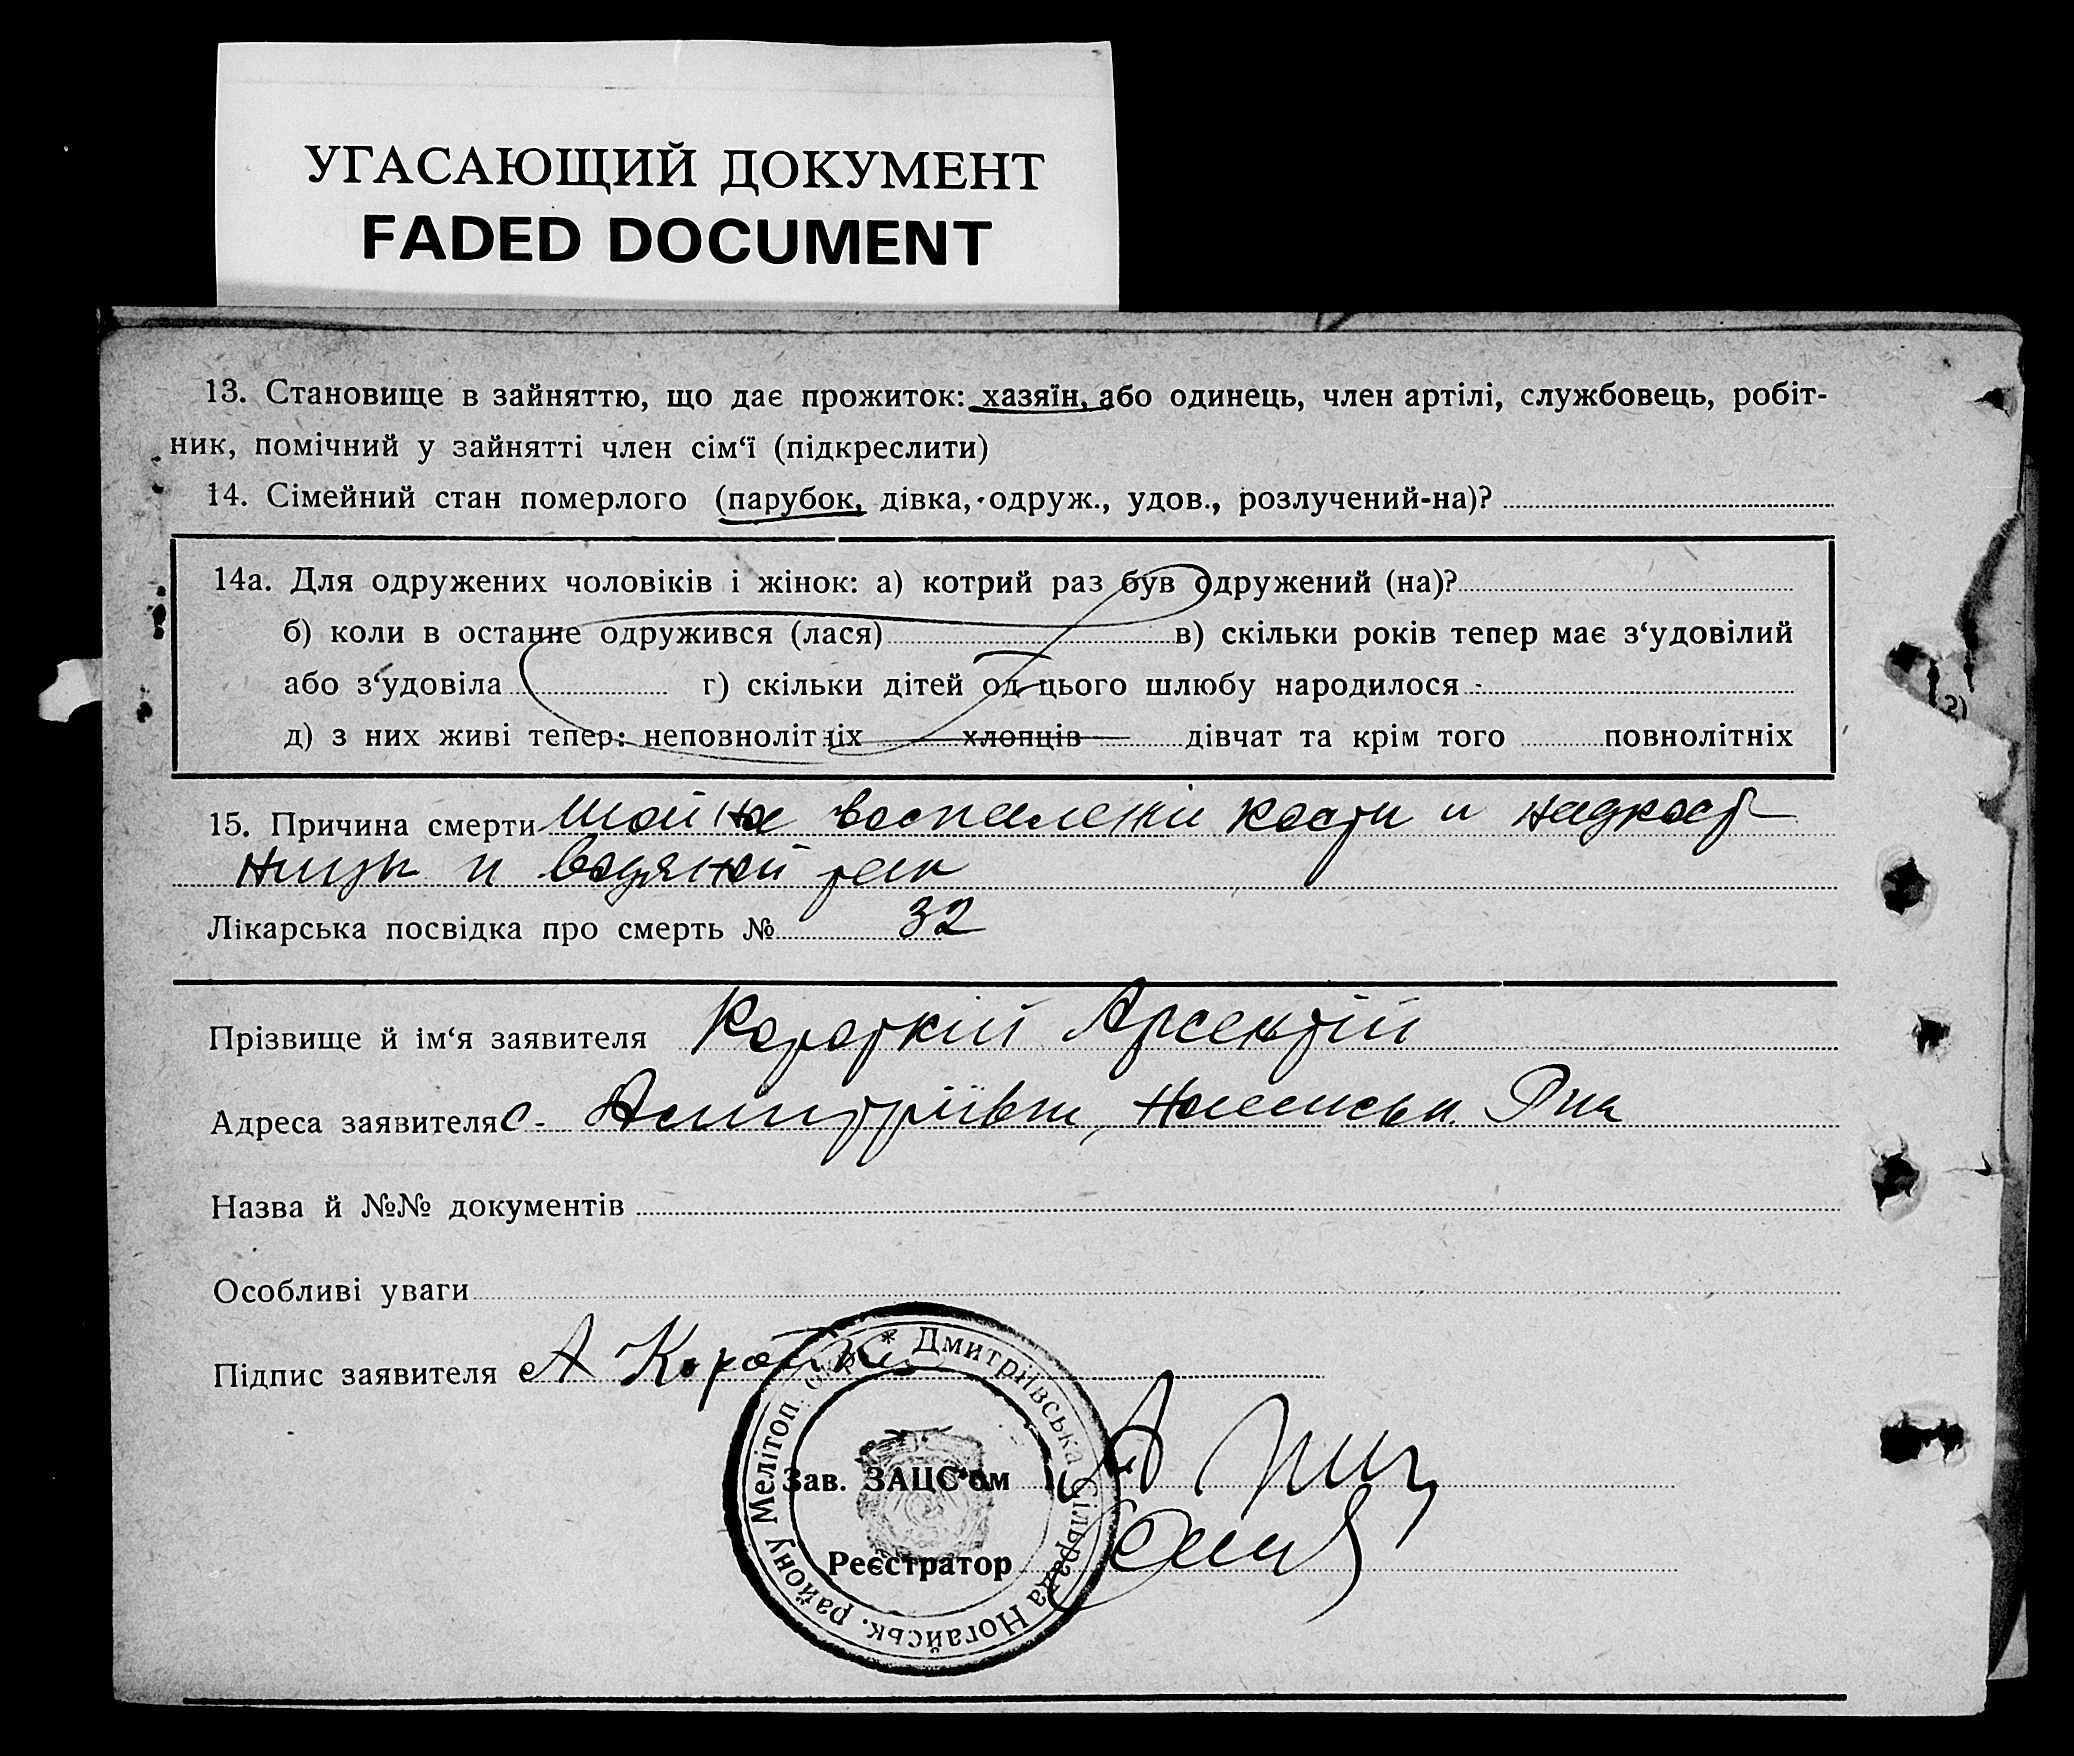 УГАСАЮЩИЙ ДОКУМЕНТ
FADED DOCUMENT
13. Становище в зайняттю, що дає прожиток: хазяїн, або одинець, член артілі, службовець, робіт-
ник, помічний у зайнятті член сім‘ї (підкреслити)
14. Сімейний стан померлого (парубок, дівка, одруж., удов., розлучений-на)?
14а. Для одружених чоловіків і жінок: а) котрий раз був одружений (на)?
б) коли в останнє одружився (лася) в) скільки років тепер має з‘удовілий
або з‘удовіла г) скільки дітей од цього шлюбу народилося
д) з них живі тепер: неповнолітніх хлопців дівчат та крім того повнолітніх
15. Причина смерти воспалении кости и надкост
ницы и водяной рак
Лікарська посвідка про смерть № 32
Прізвище й ім‘я заявителя Короткій Арсентій
Адреса заявителя с. Дмитріївки,
Назва й №№ документів
Особливі уваги
Підпис заявителя А Коротки
Зав. ЗАЦС‘ом
Реєстратор
* Дмитріївська Сільрада Ногайськ. району Мелітоп. окр.